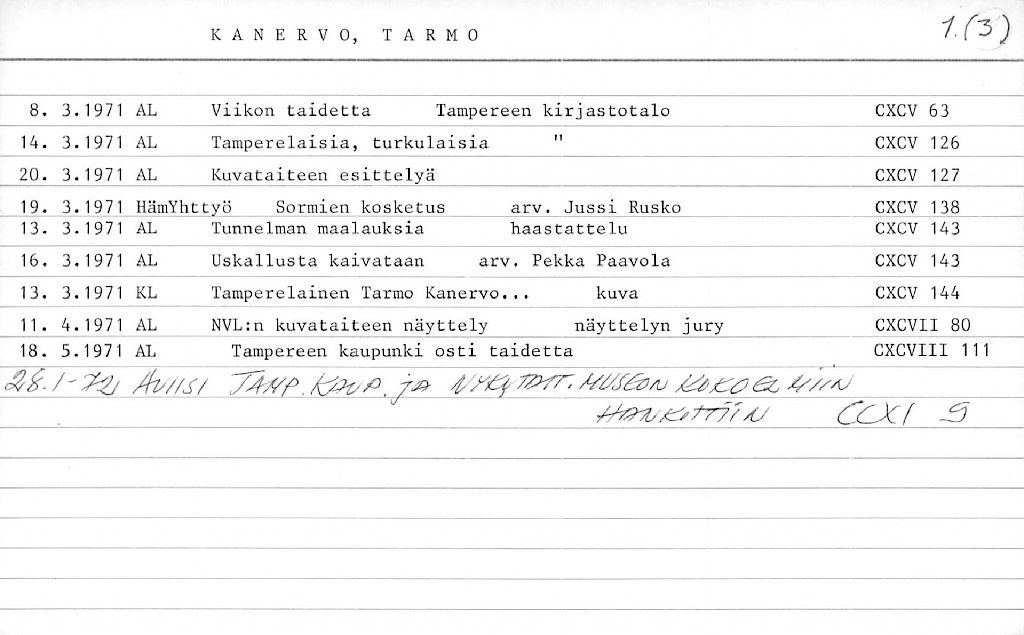 KANERVO, TARMO 1.(3)
8. 3.1971 AL Viikon taidetta Tampereen kirjastotalo CXCV 63
14. 3.1971 AL Tamperelaisia, turkulaisia " CXCV 126
20. 3.1971 AL Kuvataiteen esittelyä CXCV 127
19. 3.1971 HämYhttyö Sormien kosketus arv. Jussi Rusko CXCV 138
13. 3.1971 AL Tunnelman maalauksia haastattelu CXCV 143
16. 3.1971 AL Uskallusta kaivataan arv. Pekka Paavola CXCV 143
13. 3.1971 KL Tamperelainen Tarmo Kanervo... kuva CXCV 144
11. 4.1971 AL NVL:n kuvataiteen näyttely näyttelyn jury CXCVII 80
18. 5.1971 AL Tampereen kaupunki osti taidetta CXCVIII 111
28.1-72 AVIISI TAMP. KAUP. ja NYKYTAIT. MUSEON KOKOELMIIN
HANKITTIIN CCXI 9